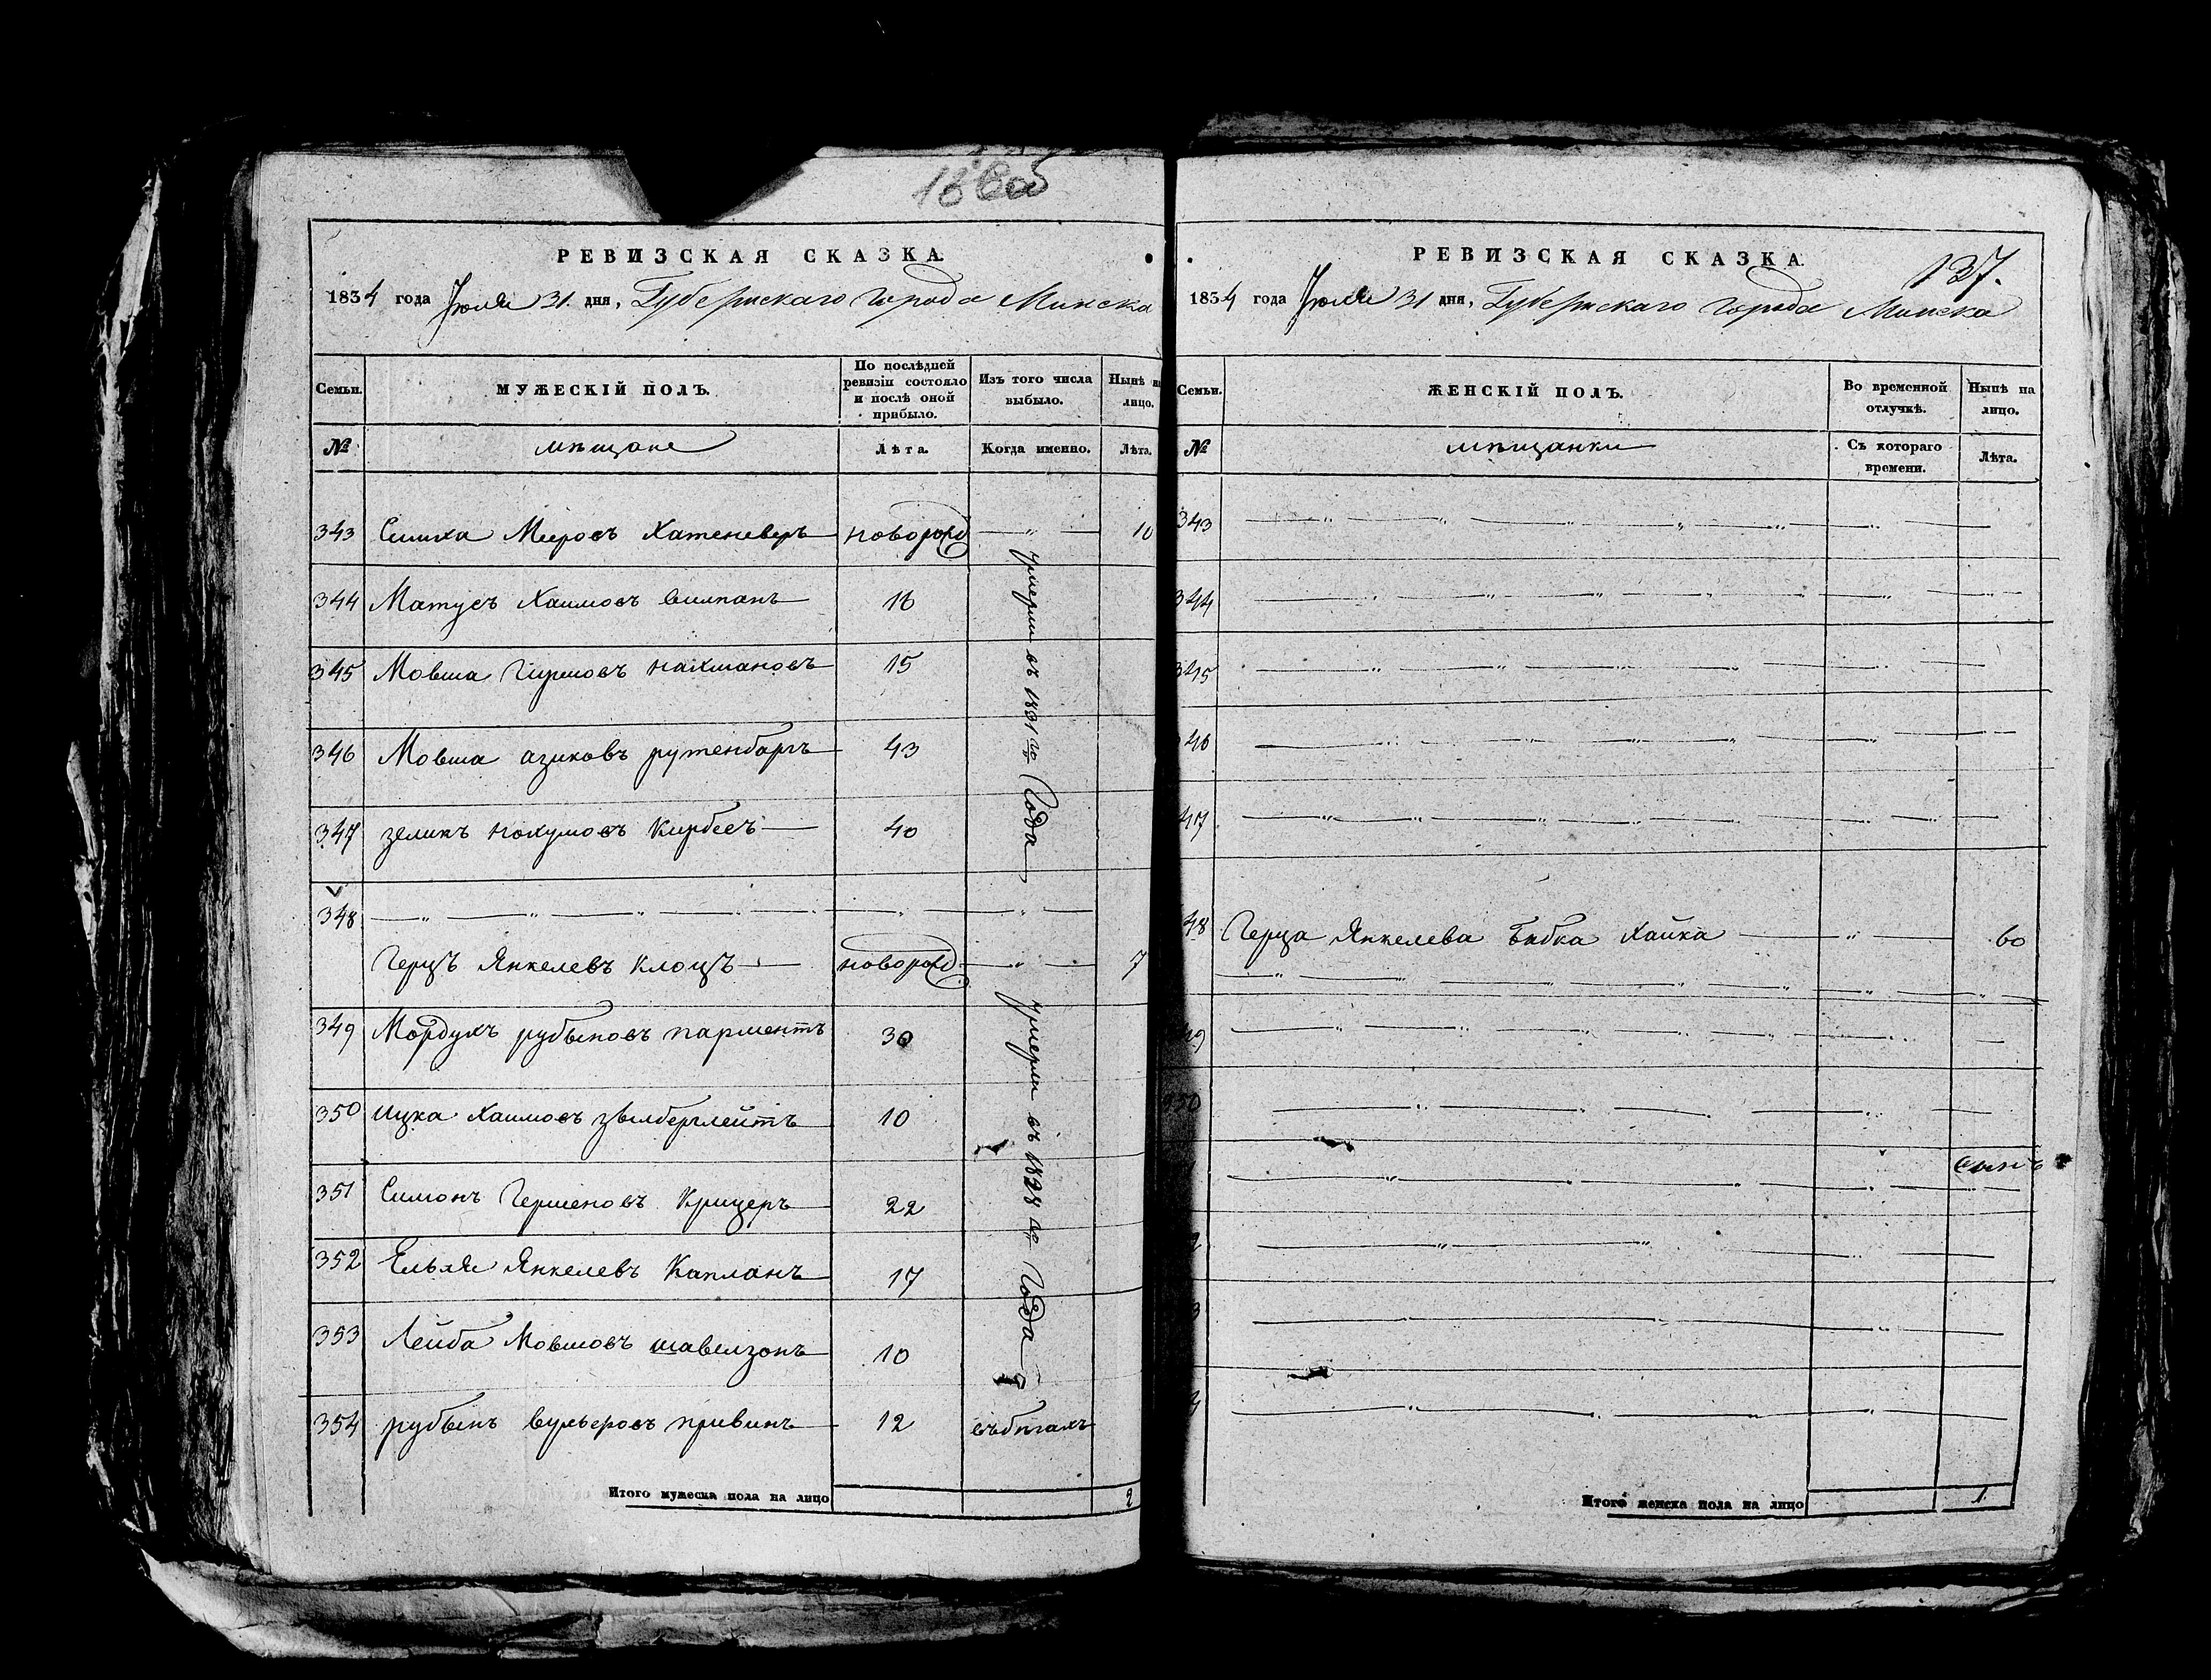 РЕВИЗСКАЯ СКАЗКА.
1834 года Июля 31. дня, Губернскаго города Минска
Семьи. МУЖЕСКІЙ ПОЛЪ. По послѣдней ревизіи состояло и послѣ оной прибыло. Изъ того числа выбыло. Нынѣ на лицо.
№ мѣщане Лѣта. Когда именно. Лѣта.
343 Симха Меировъ новорожд — " — 10
344 Матусъ Хаимовъ 16
345 Мовша нахмановъ 15
346 Мовша азиковъ рутенбаргъ 43
347 зеликъ нохумовъ Кирбесъ 40
умерли въ 1831 го Года
348 — " — " — " — " — " — " —
Герцъ Янкелевъ Клоцъ новорожд — " — 7
349 Мордухъ рубыновъ парментъ 30
350 ицка Хаимовъ 10
351 Симонъ Крицеръ 22
352 Ельяя Янкелевъ Капланъ 17
353 Лейба Мовшовъ шавелзонъ 10
умерли въ 1828 Года
354 рубынъ привинъ 12 въбѣгахъ
Итого мужеска пола на лицо 2
РЕВИЗСКАЯ СКАЗКА
137.
1834 года Июля 31 дня, Губернскаго города Минска
Семьи. ЖЕНСКІЙ ПОЛЪ. Во временной отлучкѣ. Нынѣ на лицо.
№ мѣщанки Съ котораго времени. Лѣта.
343
344
345
46
47
48 Герца Янкелева бабка Хайка — " — 60
49
350
Итого женска пола на лицо 1.